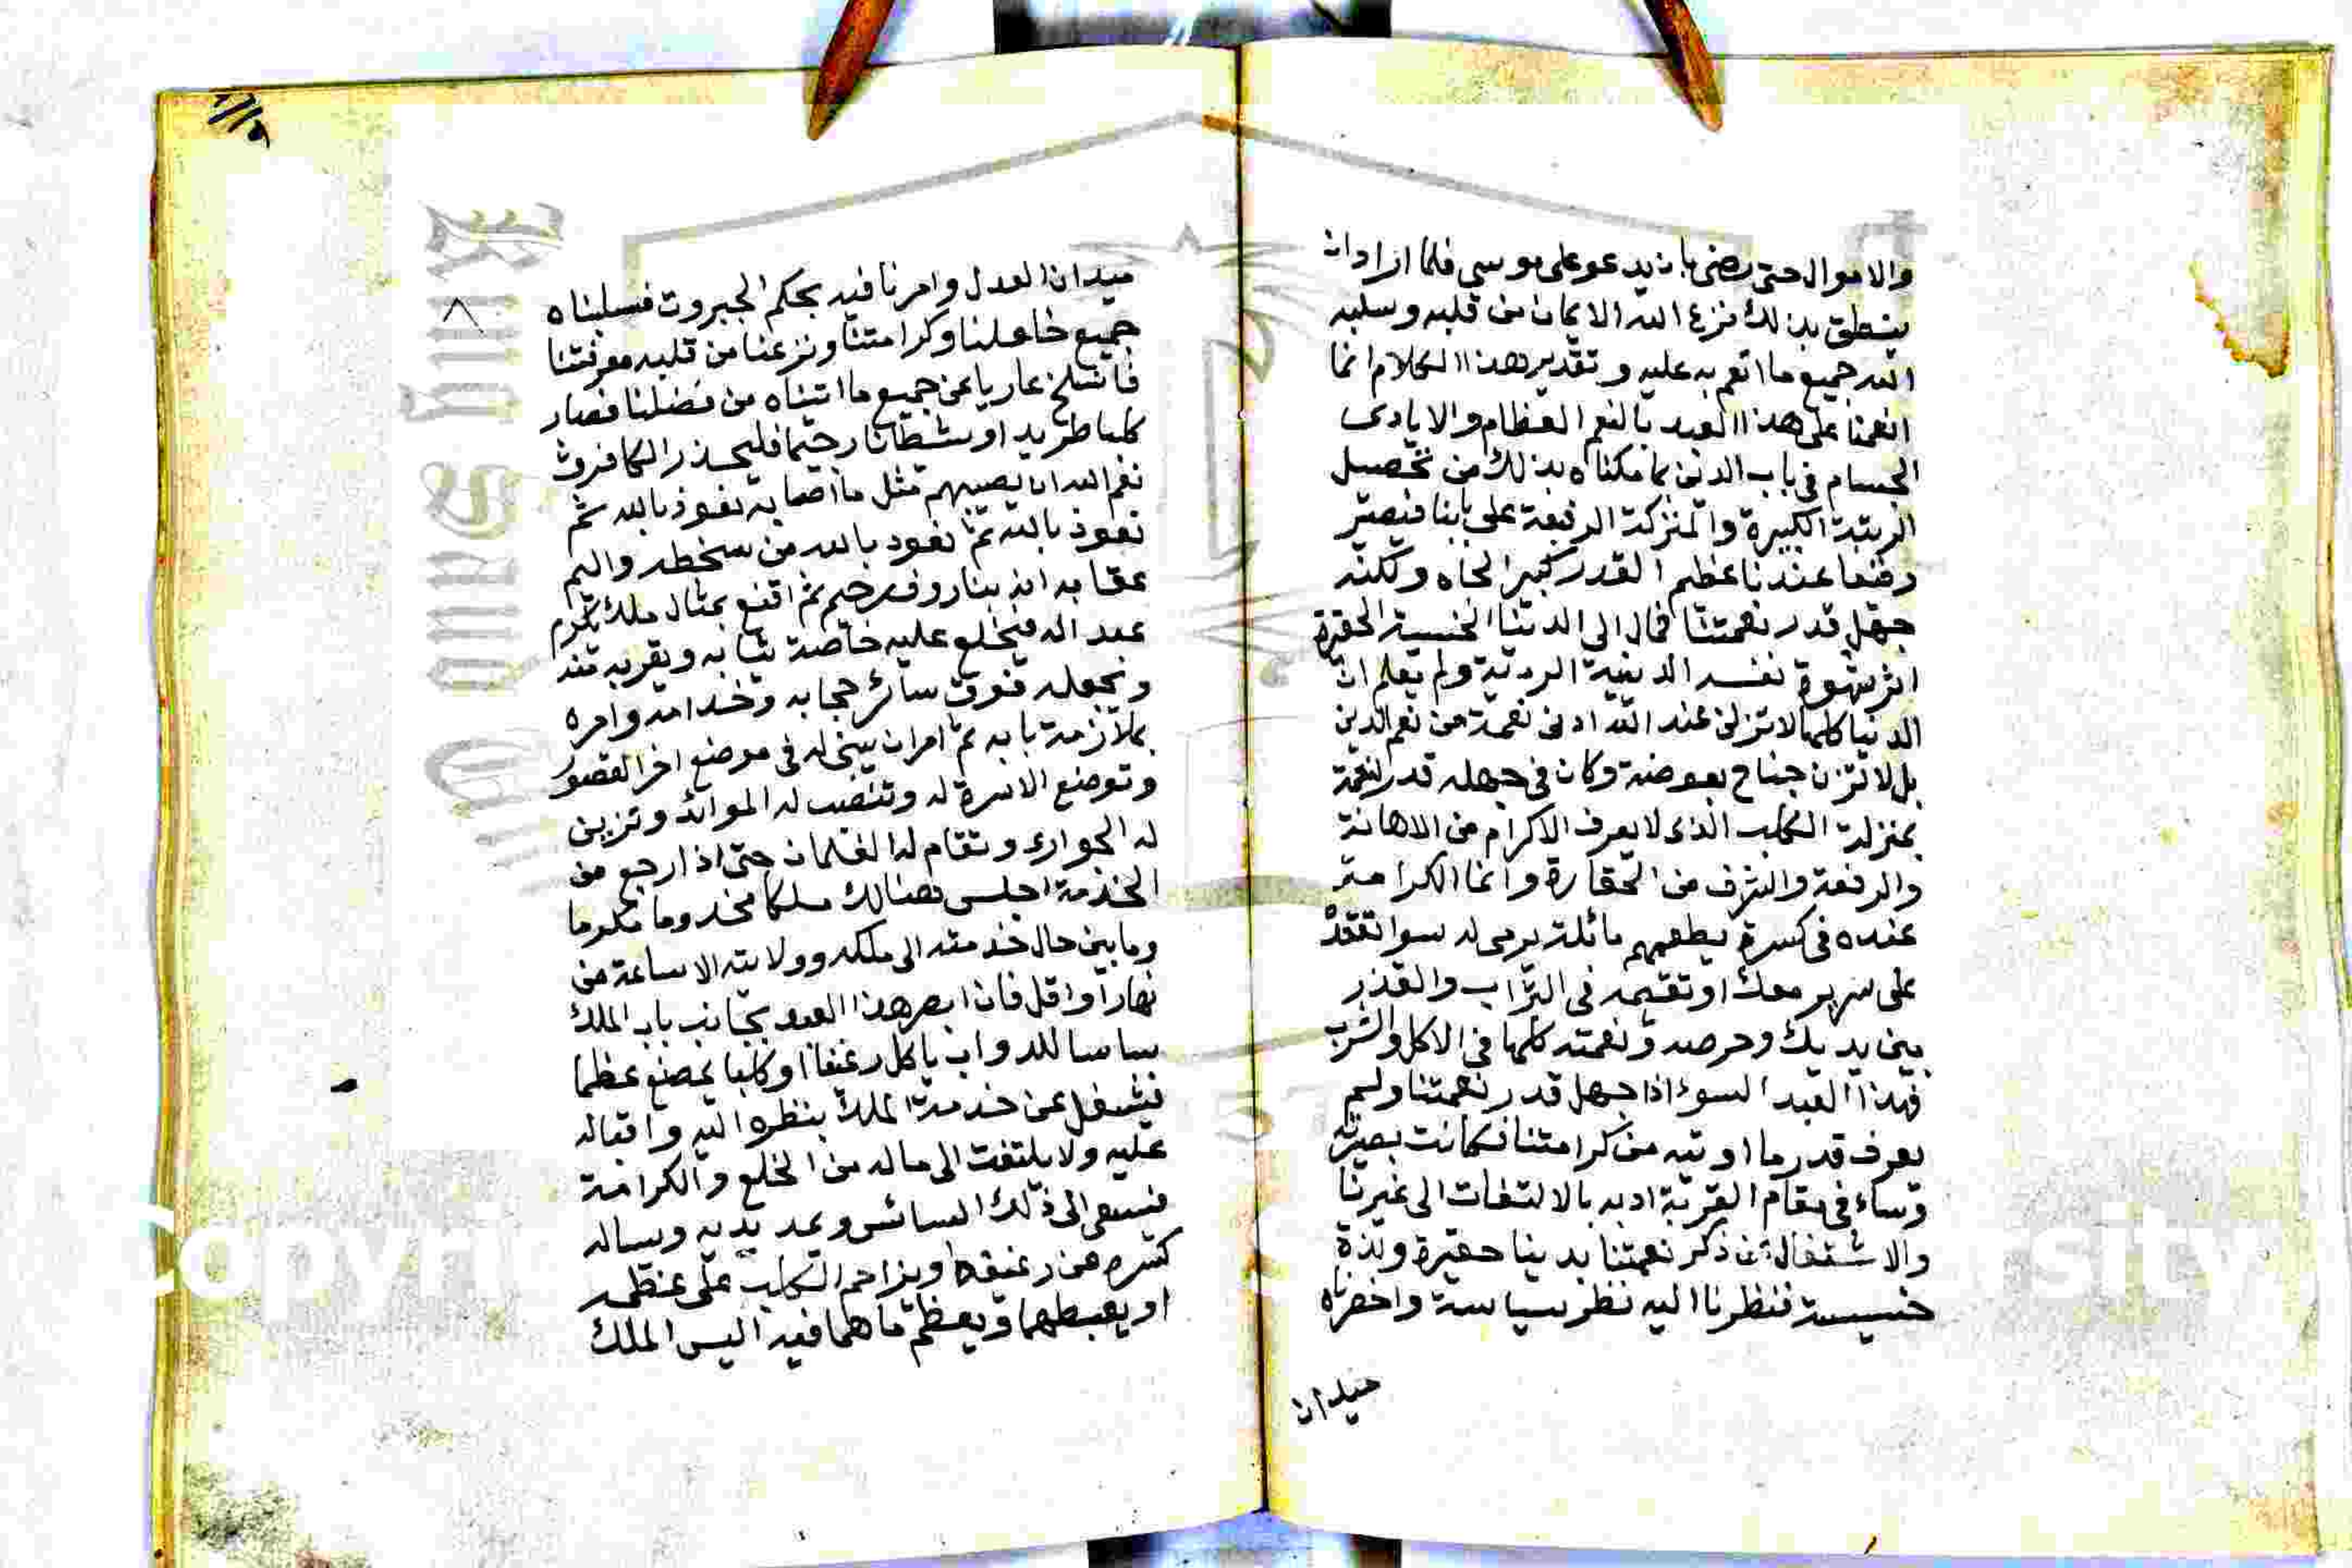 والاموال حتى رضى بان يدعو على موسى فلما اراد ان
ينطق بذلك نزع الله الايمان من قلبه وسلبه
الله جميع ما انعم به عليه وتقدير هذا الكلام انما
انعمنا على هذا العبد بالنعم العظام والايادى
الجسام فى باب الدين بما مكناه بذلك من تحصيل
الرتبة الكبيرة والمنزلة الرفيعة على بابنا فيصير
رفيعا عندنا عظيم القدر كبير الجاه ولكنه
جهل قدر نعمتنا فمال الى الدنيا الخسيسة الحقيرة
اثر شهوة نفسه الدنيئة الردية ولم يعلم ان
الدنيا كلها لا تزن عند الله ادنى نعمة من نعم الدين
بل لا تزن جناح بعوضة وكان فى جهله قدر النعمة
بمنزلة الكلب الذى لا يعرف الاكرام من الاهانة
والرفعة والشرف من الحقارة وانما الكرامة
عنده فى كسرة يطعمهم مائلة يرمى له سوا تقعده
على سرير معك او تقيمه فى التراب والقذر
بين يديك وحرصه ونعمته كلها فى الاكل والشرب
فهذا العبد السوء اذا جهل قدر نعمتنا ولم
يعرف قدر ما اوتيه من كرامتنا فكانت بصيرته
وساء فى مقام القربة ادبه بالالتفات الى غيرنا
والاشتغال عن ذكر نعمتنا بدنيا حقيرة ولذة
خسيسة فنظرنا اليه نظر سياسة واحضرناه
ميدان
ميدان العدل وامرنا فيه بحكم الجبروت فسلبناه
جميع خلعنا وكرامتنا ونزعنا من قلبه معرفتنا
فانسلخ عاريا عن جميع ما اتيناه من فضلنا فصار
كلبا طريدا وشيطانا رجيما فليحذر الكافرون
نعم الله ان يصيبهم مثل ما اصابه نعوذ بالله ثم
نعوذ بالله ثم نعوذ بالله من سخطه واليم
عقابه انه بنا رؤف رحيم ثم اقنع بمثال ملك يكرم
عبدا له فيخلع عليه خاصة ثيابه ويقربه منه
ونجعله فوق سائر حجابه وخدامه وامره
بملازمة بابه ثم امر ان يبنى له فى موضع اخر القصور
وتوضع الاسرة له وتنصب له الموائد وتزين
له الجوارى وتقام له الغلمان حتى اذا رجع من
الخدمة اجلس هنالك ملكا مخدوما مكرما
وما بين حال خدمته الى ملكه وولايته الا ساعة من
نهار او اقل فان ابصر هذا العبد بجانب باب الملك
سايسا للدواب ياكل رغيفا او كلبا يمضغ عظما
فيشغل عن خدمة الملك بنظره اليه واقباله
عليه ولا يلتفت الى ما له من الخلع والكرامة
فيسعى الى ذلك السائس ويمد يديه ويساله
كسره من رغيفه او يزاحم الكلب على عظمه
او يغبطهما ويعظم ما هما فيه اليس الملك